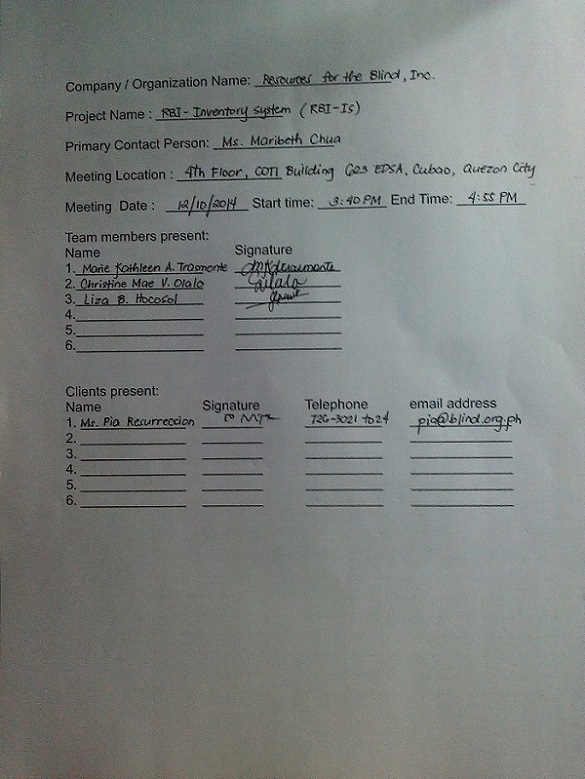 Company / Organization Name: Resources for the Blind, Inc.
Project Name : RBI - Inventory System (RBI-IS)
Primary Contact Person: Ms. Maribeth Chua
Meeting Location : 4th Floor, COTI Building 623 EDSA, Cubao, Quezon City
Meeting Date : 12/10/2014 Start time: 3:40 PM End Time: 4:55 PM
Team members present:
Name Signature
1. Marie Kathleen A. Trasmonte
2. Christine Mae V. Olalo
3. Liza B. Hocosol
4.
5.
6.
Clients present:
Name Signature Telephone email address
1. Ms. Pia Resurreccion 726-3021 to 24 pia@blind.org.ph
2.
3.
4.
5.
6.